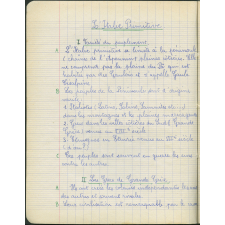 L'Italie Primitive
I Limite du peuplement
A. L'Italie primitive se limite à la péninsule
(chaîne de l'Apennin) plaines côtières. Elle
ne comprend pas la plaine du Pô qui est
habitée par des Gaulois et s'appelle Gaule
Cisalpine.
B Les peuples de la Péninsule sont d'origine
1 Italiotes (Latins, Sabins, Samnites etc
dans les montagnes et les plaines
2 Grecs dans les villes côtières du Sud (Grande
Grèce) venus au VIII siècle
3 Etrusques en Etrurie venus au siècle
C Ces peuples sont souvent en guerre les uns
contre les autres.
II Les Grecs de Grande Grèce
A Ils ont créé les colonies indépendantes les unes
des autres et souvent rivales
B Leur civilisation est remarquable par le